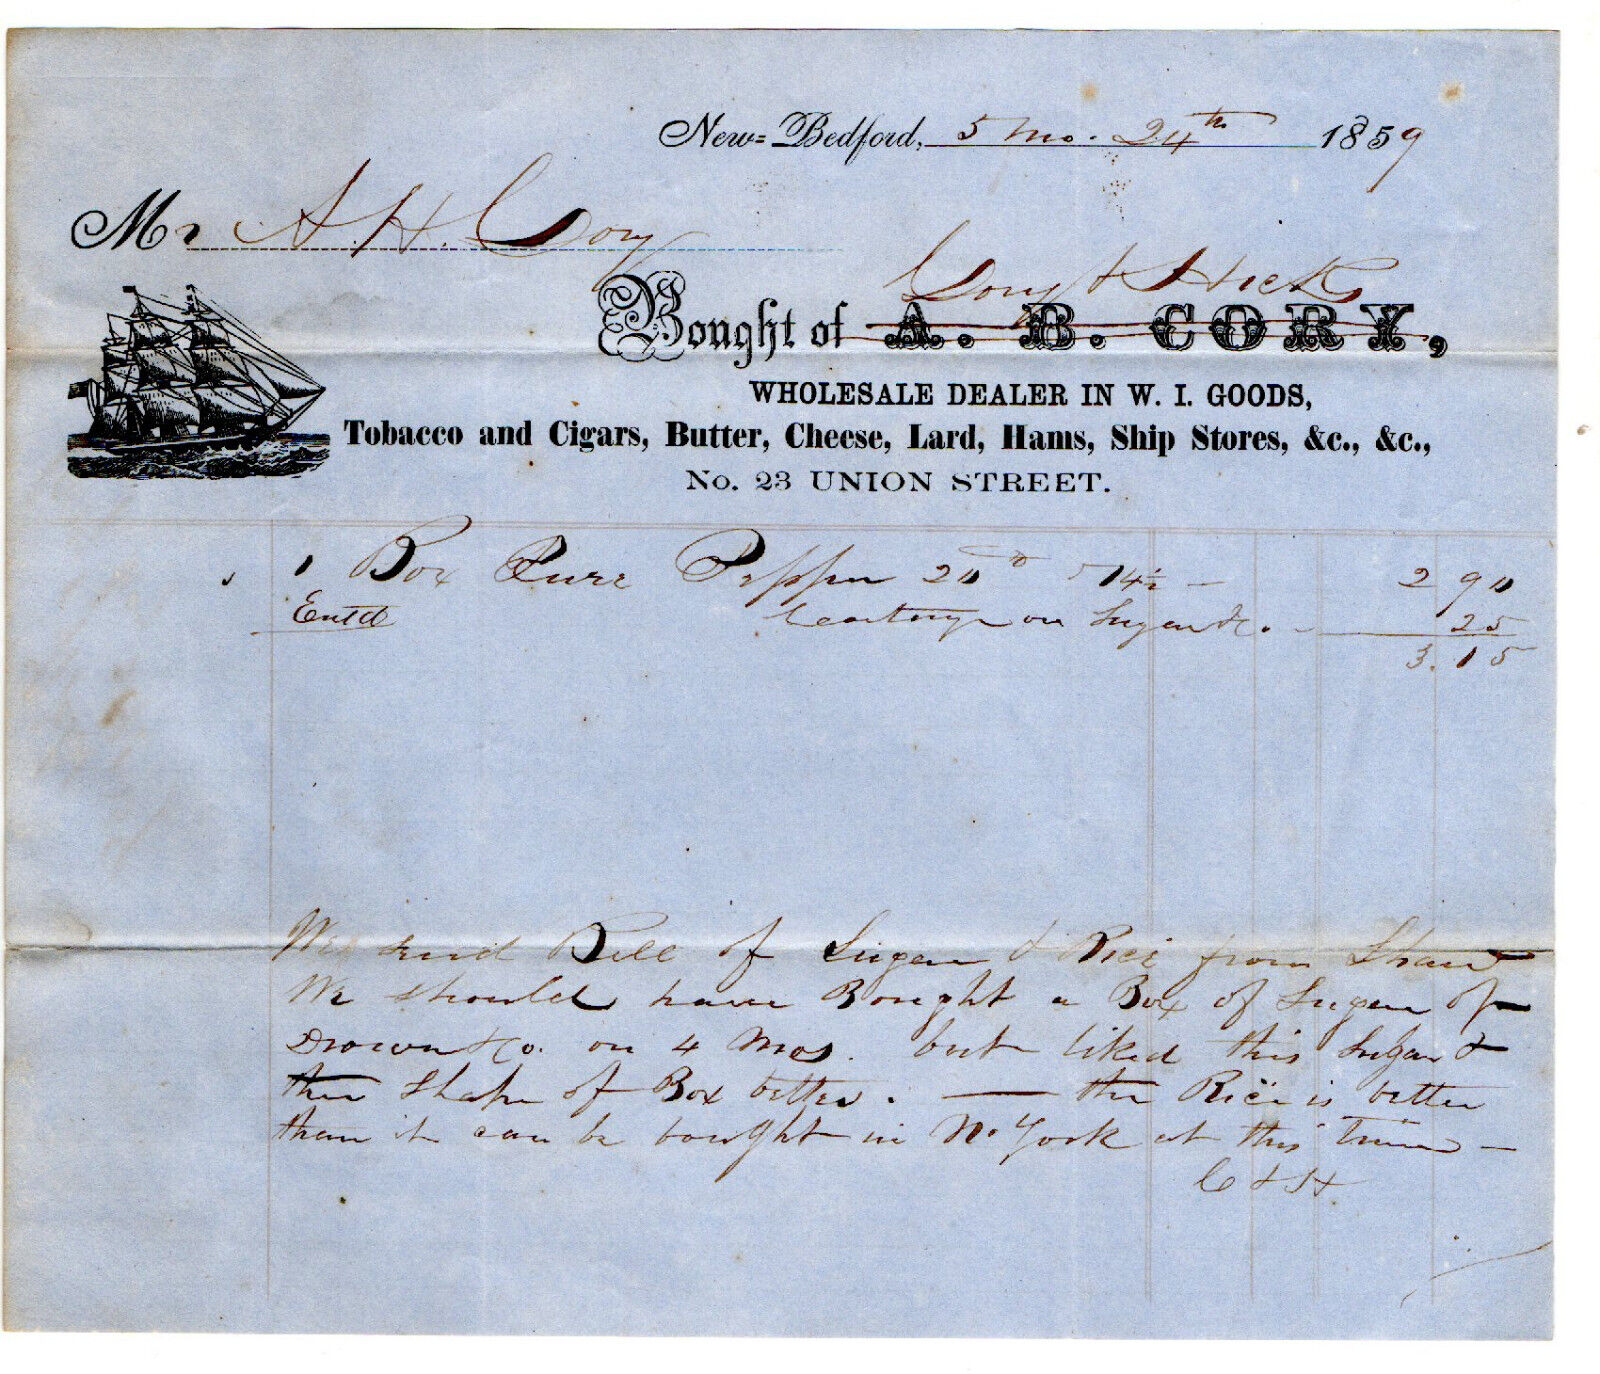 New-Bedford, 5 Mo. 24th 1859
Mr A. H. Cory
Cory & Hicks
Bought of A. B. CORY,
WHOLESALE DEALER IN W. I. GOODS,
Tobacco and Cigars, Butter, Cheese, Lard, Hams, Ship Stores, &c., &c.,
No. 23 UNION STREET.
1 Box Pure Pepper 20 14½ - 2 90
Entd Cartage on Sugar &c. - 25
3.15
We send Bill of Sugar & Rice from Shaw
We should have Bought a Box of Sugar of
Drown & Co. on 4 mos. but liked this Sugar &
the Shape of Box better. — the Rice is better
than it can be bought in N. York at this Time —
C & H